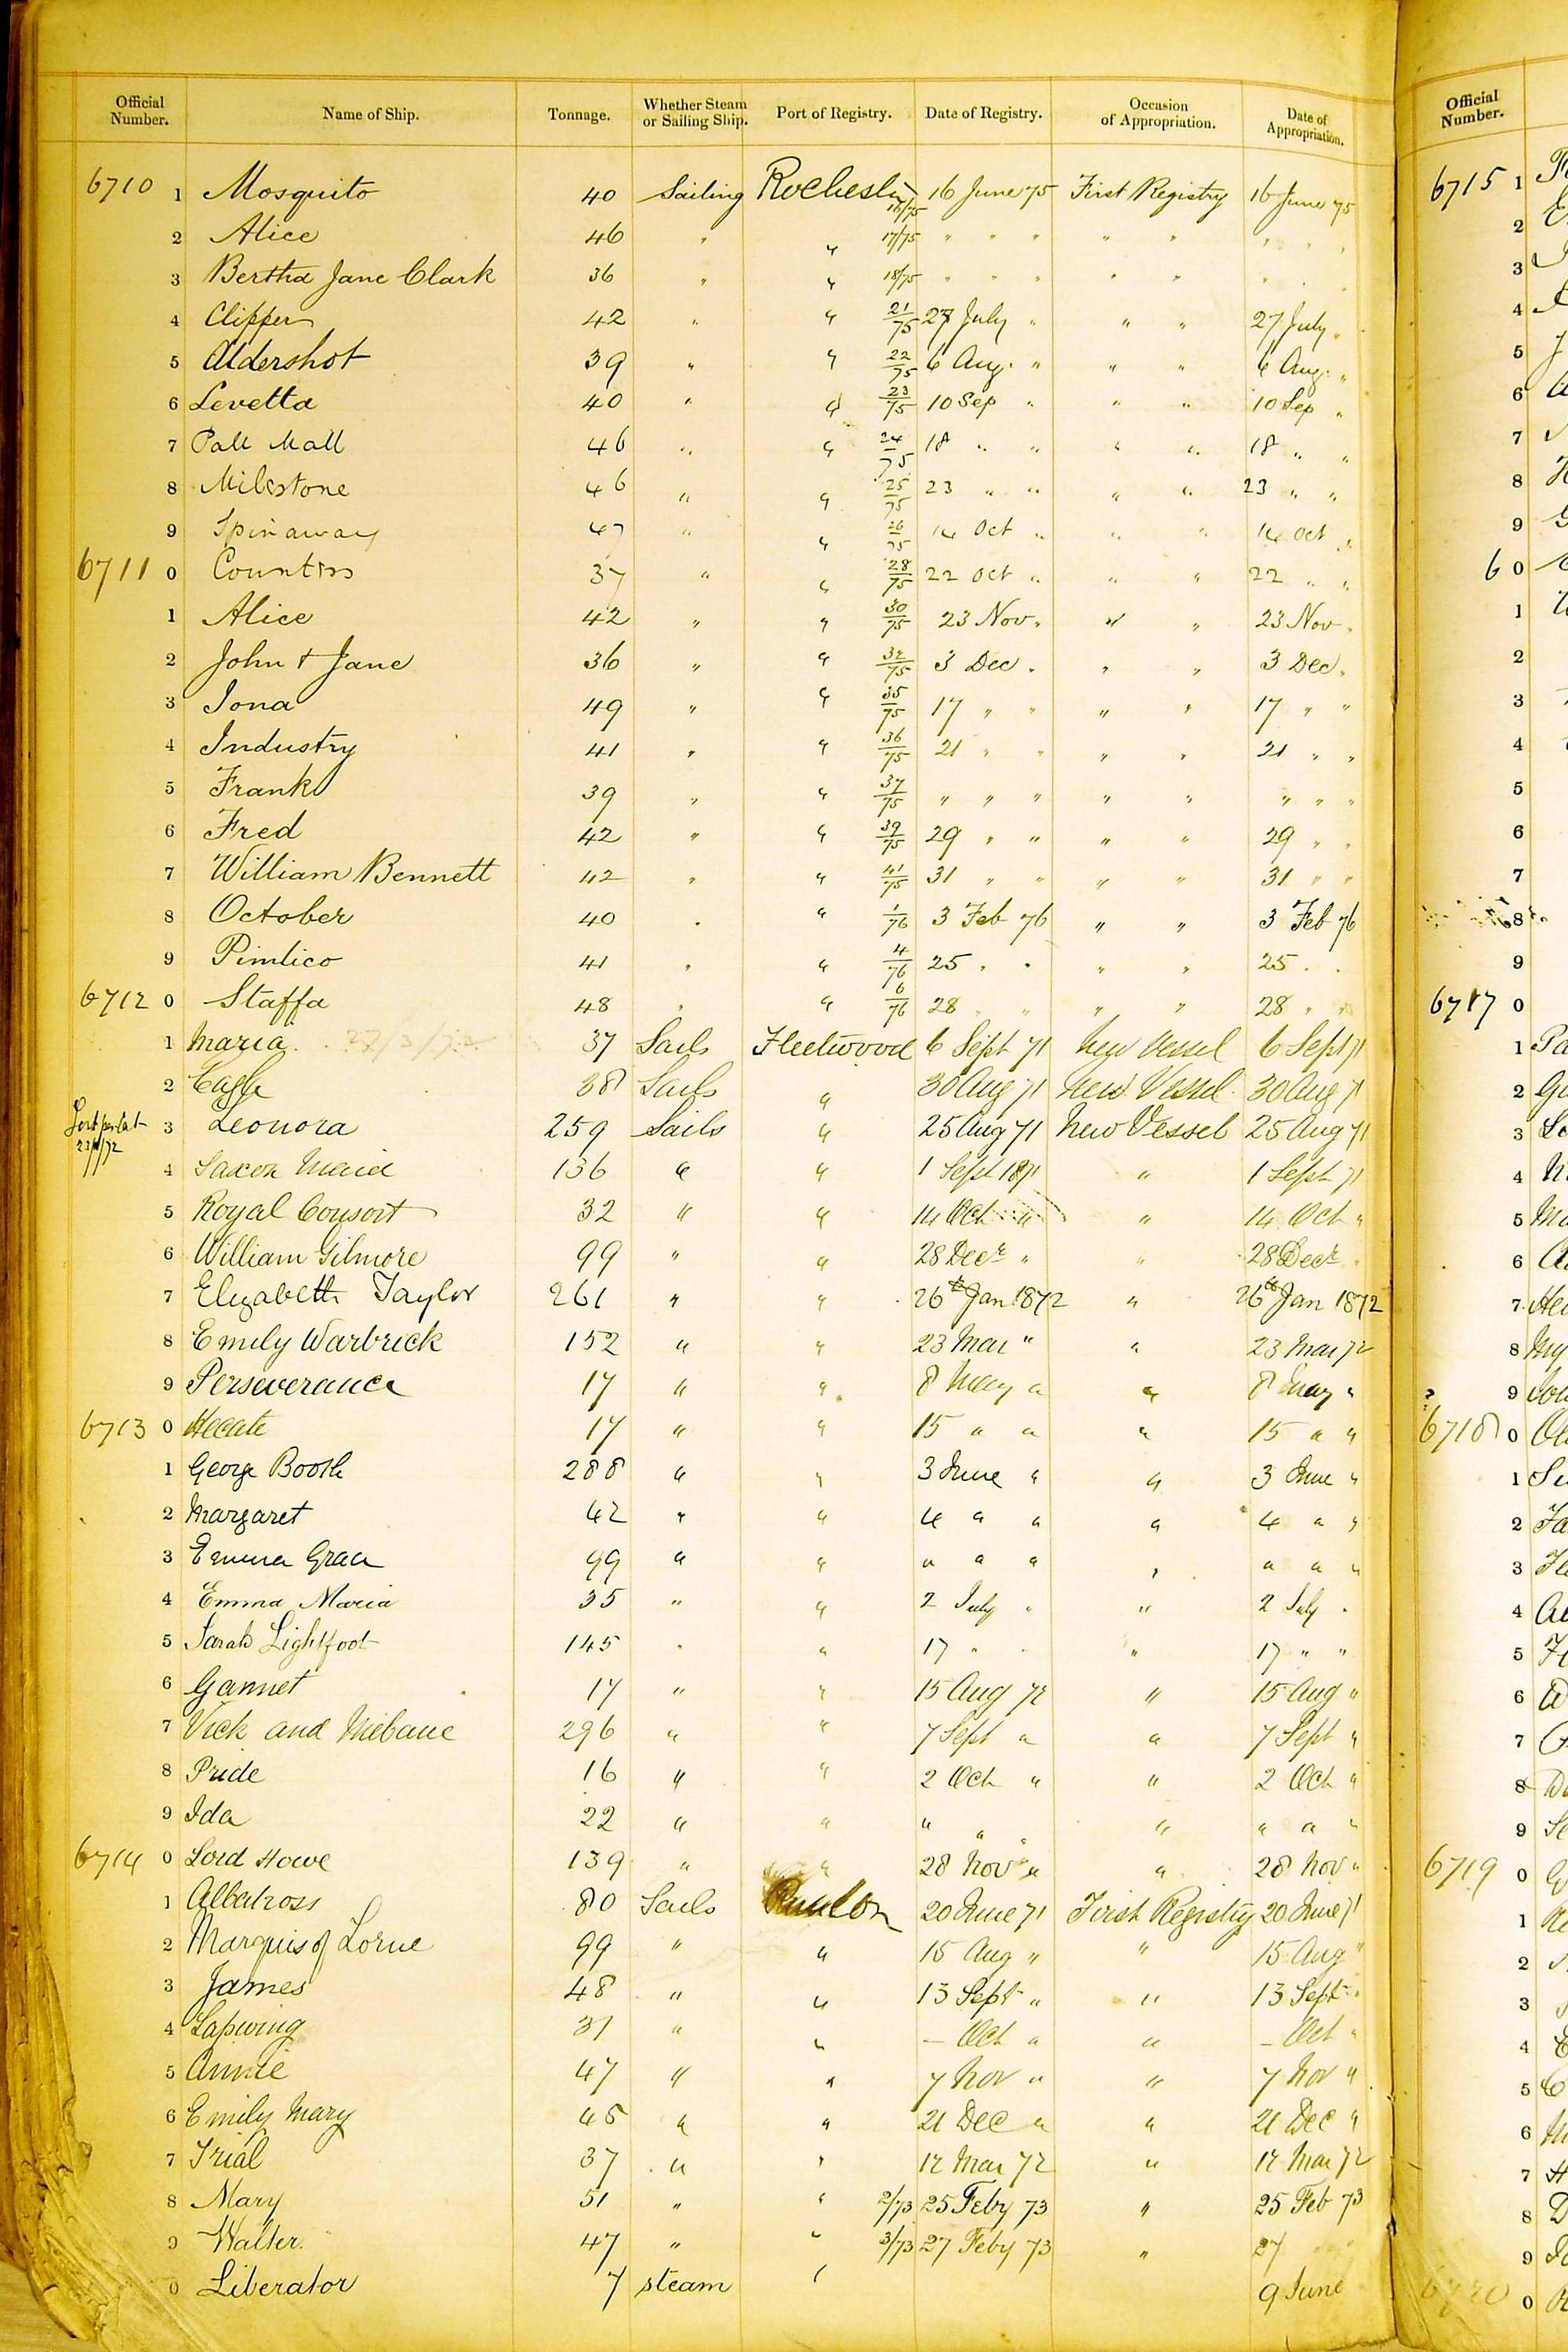 Official Number. Name of Ship. Tonnage. Whether Steam or Sailing Ship. Port of Registry. Date of Registry. Occasion of Appropriation. Date of Appropriation. Official Number.
6710 1 Mosquito 40 Sailing Rochester 16/75 16 June 75 First Registry 16 June 75 6715 1
2 Alice 46 " " 17/75 " " " " " " " " 2
3 Bertha Jane Clark 36 " " 18/75 " " " " " " " " 3
4 Clipper 42 " " 21/75 27 July " " " 27 July " 4
5 Aldershot 39 " " 22/75 6 Aug. " " " 6 Aug. " 5
6 Levetta 40 " " 23/75 10 Sep " " " 10 Sep " 6
7 Pall Mall 46 " " 24/75 18 " " " " 18 " " 7
8 Milestone 46 " " 25/75 23 " " " " 23 " " 8
9 Spinaway 47 " " 26/75 14 Oct " " " 14 Oct " 9
6711 0 Countess 37 " " 28/75 22 Oct " " " 22 " " 6 0
1 Alice 42 " " 30/75 23 Nov " " " 23 Nov " 1
2 John & Jane 36 " " 32/75 3 Dec " " " 3 Dec " 2
3 Iona 49 " " 35/75 17 " " " " 17 " " 3
4 Industry 41 " " 36/75 21 " " " " 21 " " 4
5 Frank 39 " " 37/75 " " " " " " " " 5
6 Fred 42 " " 39/75 29 " " " " 29 " " 6
7 William Bennett 42 " " 41/75 31 " " " " 31 " " 7
8 October 40 " " 1/76 3 Feb 76 " " 3 Feb 76 8
9 Pimlico 41 " " 4/76 25 " " " " 25 " " 9
6712 0 Staffa 48 " " 6/76 28 " " " " 28 " " 6717 0
1 Maria 37 Sails Fleetwood 6 Sept 71 New Vessel 6 Sept 71 1
2 Eagle 38 Sails " 30 Aug 71 New Vessel 30 Aug 71 2
3 Leonora 259 Sails " 25 Aug 71 New Vessel 25 Aug 71 3
4 Saxon Maid 136 " " 1 Sept 1871 " 1 Sept 71 4
5 Royal Consort 32 " " 14 Oct " " 14 Oct " 5
6 William Gilmore 99 " " 28 Decr " " 28 Decr " 6
7 Elizabeth Taylor 261 " " 26th Jan 1872 " 26th Jan 1872 7
8 Emily Warbrick 152 " " 23 Mar " " 23 Mar 72 8
9 Perseverance 17 " " 8 May " " 8 May " ? 9
6713 0 Hecate 17 " " 15 " " " 15 " " 6718 0
1 George Booth 288 " " 3 June " " 3 June " 1
2 Margaret 42 " " 4 " " " 4 " " 2
3 Emma Grace 99 " " " " " " " " " 3
4 Emma Maria 35 " " 2 July " " 2 July " 4
5 Sarah Lightfoot 145 " " 17 " " " 17 " " 5
6 Gannet 17 " " 15 Aug 72 " 15 Aug " 6
7 Vick and Mebane 296 " " 7 Sept " " 7 Sept " 7
8 Pride 16 " " 2 Oct " " 2 Oct " 8
9 Ida 22 " " " " " " " " " 9
6714 0 Lord Howe 139 " " 28 Nov " " 28 Nov " 6719 0
1 Albatross 80 Sails 20 June 71 First Registry 20 June 71 1
2 Marquis of Lorne 99 " " 15 Aug " " 15 Aug " 2
3 James 48 " " 13 Sept " " 13 Sept " 3
4 Lapwing 37 " " – Oct " " – Oct " 4
5 Annie 47 " " 7 Nov " " 7 Nov " 5
6 Emily Mary 45 " " 21 Dec " " 21 Dec " 6
7 Trial 37 " " 12 Mar 72 " 12 Mar 72 7
8 Mary 51 " " 2/73 25 Feby 73 " 25 Feb 73 8
9 Walter 47 " " 3/73 27 Feby 73 " 27 9
0 Liberator 7 steam " 9 June 6720 0